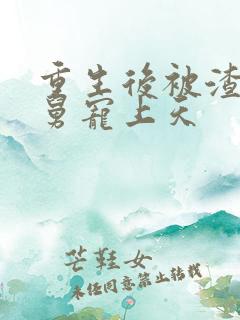 重生後被渣
舅寵上天
芒鞋女
未任同意禁止转载